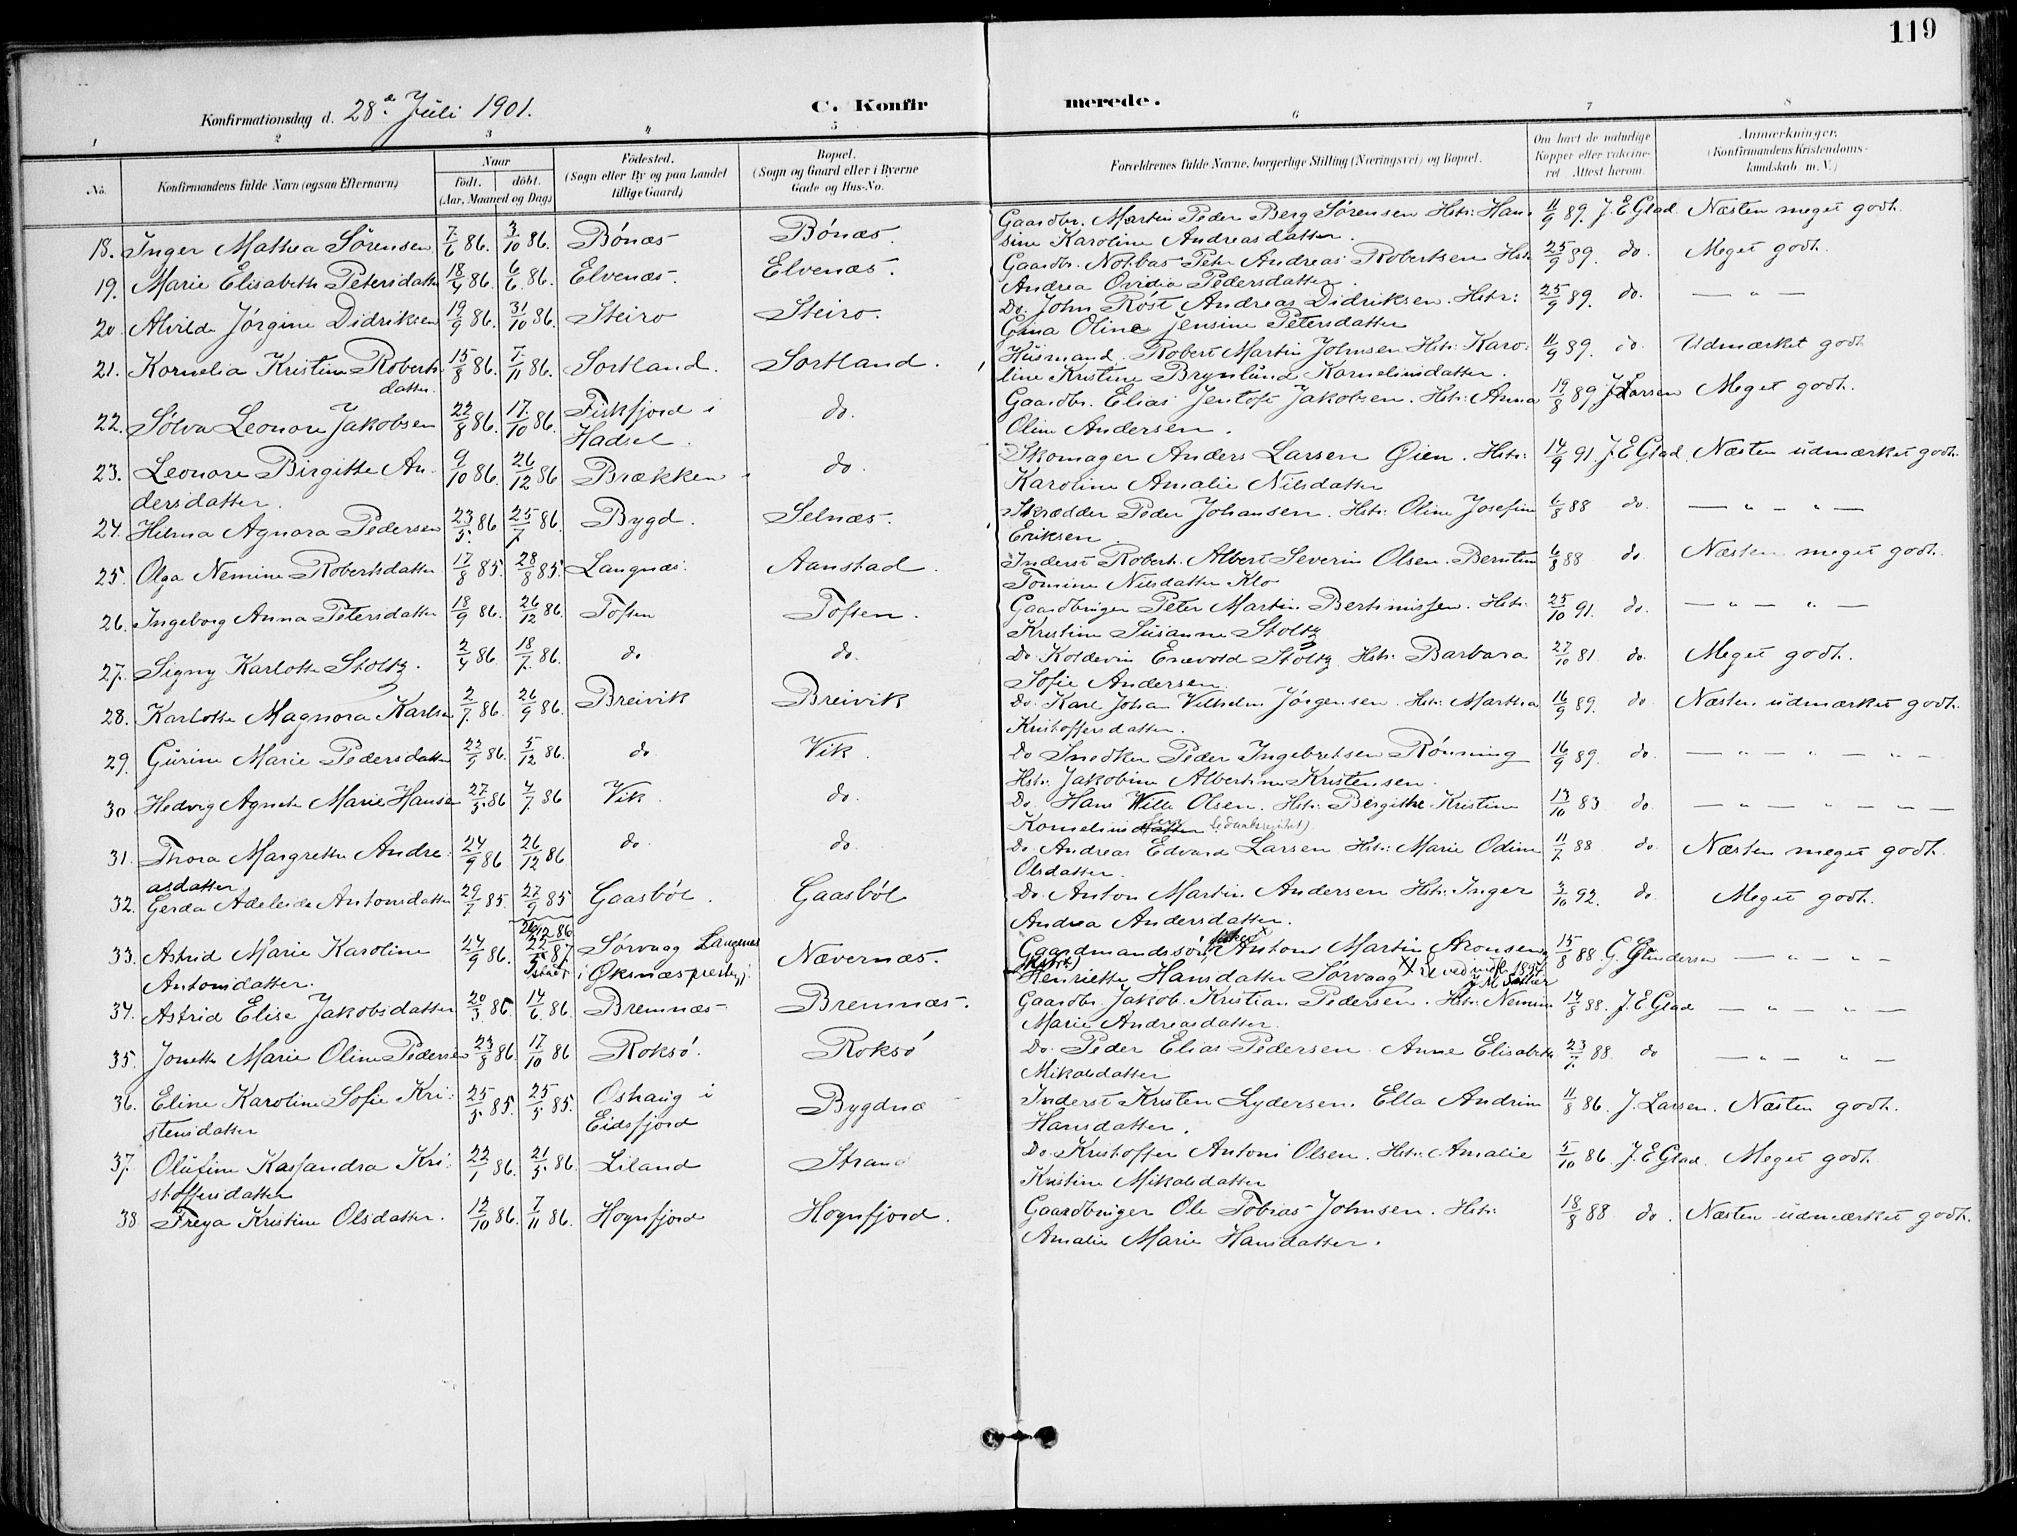 119
Konfirmationsdag d. 28de Juli 1901. C. Konfirmerede.
1 2 3 4 5 6 7 8
No. Konfirmandens fulde Navn (ogsaa Efternavn) Naar født. døbt. (Aar, Maaned og Dag) Fødested. (Sogn eller By og paa Landet tillige Gaard) Bopæl. (Sogn og Gaard eller i Byerne Gade og Hus-No. Forældrenes fulde Navne, borgerlige Stilling (Næringsvei) og Bopæl. Om havt de naturlige Kopper eller vaccineret. Attest herom. Anmærkninger. (Konfirmandens Kristendomskundskab m. V.)
18. Inger Mathea Sørensen 7/6 86. 3/10 86. Bønæs Bønæs. Gaardbr. Martin Peder Berg Sørensen Hstr: Han 11/9 89. J. E Glad Næsten meget godt.
sine Karoline Andreasdatter.
19. Marie Elisabeth Petersdatter 18/4 86. 6/6 86. Elvenæs. Elvenæs. Gaardbr. Notbas Peter Andreas Robertsen Hstr 25/9 89. do. Meget godt.
Andrea Ovidia Pedersdatter.
20. Alvilde Jørgine Didriksen 19/9 86. 31/10 86. Steiro Steiro. Do. John Røst Andreas Didriksen. Hstr: 25/9 89. do. — " —
Gina Oline Jensine Petersdatter
21. Kornelia Kristine Roberts 15/8 86. 7/11 86. Sortland. Sortland. Husmand Robert Martin Johnsen Hstr: Karo: 11/9 89. do Udmærket godt
datter. line Kristine Brynlund Korneliusdatter.
22. Sølva Leonore Jakobsen 22/8 86. 17/10 86. Fiskfjord i do. Gaardbr. Elias Jentoft Jakobsen. Hstr: Anna 19/8 89 J Larsen Meget godt.
Hadsel. Oline Andersen.
23. Leonore Birgitte An- 9/10 86. 26/12 86 Brækken do. Skomager Anders Larsen Øien. Hstr: 14/9 91. J. E Glad. Næsten udmærket godt.
dersdatter. Karoline Amalie Nilsdatter
24. Hilma Agnora Pedersen 23/5 86 25/7 86. Bygd. Selnæs. Skrædder Peder Johansen. Hstr: Oline Josefine 6/8 88 do — " — " —
Eriksen.
25. Olga Nemine Robertsdatter 17/8 85. 28/8 85. Langnæs. Aanstad. Inderst Robert Albert Severin Olsen. Berntine 6/8 88 do Næsten meget godt.
Tomine Nilsdatter Klo
26. Ingeborg Anna Petersdatter 18/9 86. 26/12 86. Toften Toften. Gaardbruger Peter Martin Bertinussen. Hstr: 25/10 91. do. — " — " —
Kristine Susanne Stoltz
27. Signy Karlotte Stoltz. 2/4 86 18/7 86. do do. Do. Koldevin Enevold Stoltz Hstr: Barbara 27/10 81 do. Meget godt.
Sofie Andersen.
28. Karlotte Magnora Karlsen 2/7 86. 26/9 86. Breivik Breivik Do. Karl Johan Vilhelm Jørgensen. Hstr: Marthea 16/9 89. do Næsten udmærket godt.
Kristoffersdatter.
29. Gurine Marie Pedersdatter 22/9 86. 5/12 86. do Vik. do Snedker Peder Ingebretsen Rønning 16/9 89. do. — " — " — " —
Hstr. Jakobine Albertine Kristensen.
30 Hedvig Agnete Marie Hansen 27/5 86 4/7 86 Vik. do. Do. Hans Wille Olsen. Hstr: Birgitte Kristine 13/10 83 do — " — " — " —
Kornelius
31. Thora Margrethe Andre- 24/9 86. 26/12 86 do do. Do Andreas Edvard Larsen Hstr: Marie Odine 11/7 88 do Næsten meget godt.
asdatter Olsdatter.
32. Gerda Adeleide Antonsdatter 29/7 85. 27/9 85 Gaasbøl. Gaasbøl Do. Anton Martin Andersen Hstr: Inger 3/10 92. do Meget godt.
Andrea Andersdatter.
33. Astrid Marie Karoline 24/9 86. 26/12 86 22/5 87 Sørvaag Langenes Nævernæs. Gaardmandssøn Antoni Martin Aronsen 15/8 88 G. Gundersen — " — " —
Antonsdatter. i Øksnæs præstegj. Henriette Hansdatter Sørvaag
34. Astrid Elise Jakobsdatter 20/3 86 14/6 86. Bremnæs Bremnæs. Gaardbr. Jakob Kristian Pedersen. Hstr: Nemine 14/8 88. J. E Glad — " — " —
Marie Andreasdatter.
35. Jonette Marie Oline Pedersen 23/8 86. 17/10 86 Roksø. Roksø Do. Peder Elias Pedersen Anne Elisabeth 23/7 88. do — " — " —
Mikalsdatter
36. Eline Karoline Sofie Kri- 25/3 85. 25/5 85. Oshaug i Bygdnæ Inderst Kristen Lydersen. Ella Andrine 11/8 86. J. Larsen. Næsten godt.
stensdatter Eidsfjord Hansdatter.
37. Olufine Kassandra Kri- 22/1 86. 21/3 86. Liland Strand Do. Kristoffer Antoni Olsen. Hstr: Amalie 5/10 86. J. E Glad. Meget godt.
stoffersdatter Kristine Mikalsdatter
38 Freya Kristine Olsdatter. 12/10 86. 7/11 86. Hognfjord Hognfjord. Gaardbruger Ole Tobias Johnsen. Hstr: 18/8 88 do. Næsten udmærket godt.
Amalie Marie Hansdatter.